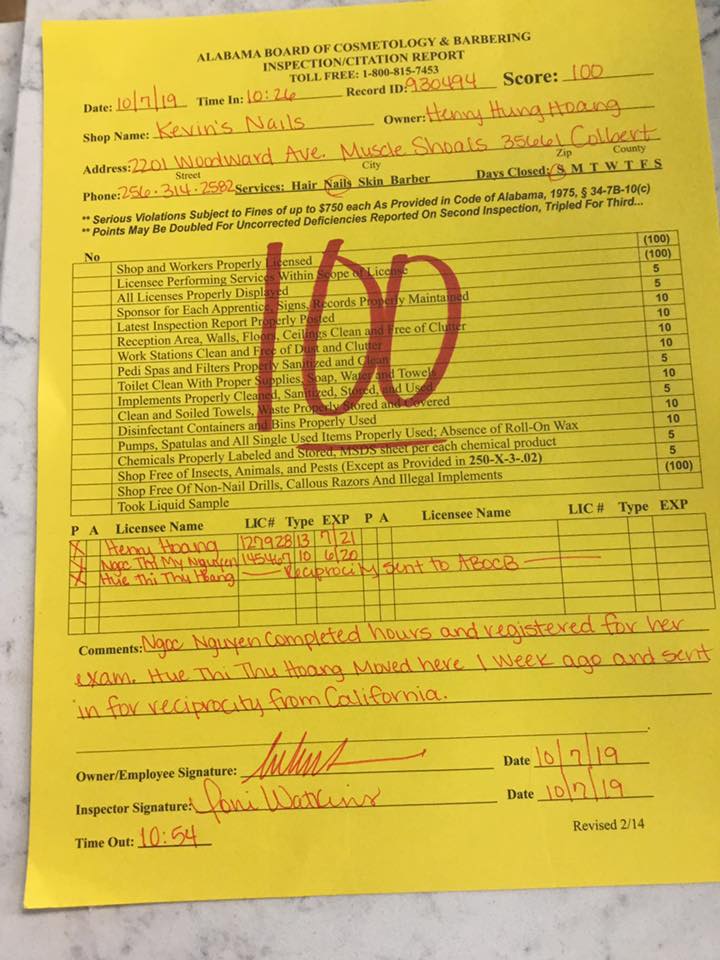 ALABAMA BOARD OF COSMETOLOGY & BARBERING
INSPECTION/CITATION REPORT
TOLL FREE: 1-800-815-7453
Date: 10/7/19 Time In: 10:26 Record ID: 930494 Score: 100
Shop Name: Kevin's Nails Owner: Henry Hung Hoang
Address: 2201 Woodward Ave. Muscle Shoals 35661 Colbert
Street City Zip County
Phone: 256-314-2582 Services: Hair Nails Skin Barber Days Closed: S M T W T F S
** Serious Violations Subject to Fines of up to $750 each As Provided in Code of Alabama, 1975, § 34-7B-10(c)
** Points May Be Doubled For Uncorrected Deficiencies Reported On Second Inspection, Tripled For Third...
No
Shop and Workers Properly Licensed (100)
Licensee Performing Services Within Scope of License (100)
All Licenses Properly Displayed 5
Sponsor for Each Apprentice, Signs, Records Properly Maintained 5
Latest Inspection Report Properly Posted 10
Reception Area, Walls, Floors, Ceilings Clean and Free of Clutter 10
Work Stations Clean and Free of Dust and Clutter 10
Pedi Spas and Filters Properly Sanitized and Clean 10
Toilet Clean With Proper Supplies, Soap, Water and Towels 5
Implements Properly Cleaned, Sanitized, Stored, and Used 10
Clean and Soiled Towels, Waste Properly Stored and Covered 5
Disinfectant Containers and Bins Properly Used 10
Pumps, Spatulas and All Single Used Items Properly Used; Absence of Roll-On Wax 10
Chemicals Properly Labeled and Stored, MSDS sheet per each chemical product 5
Shop Free of Insects, Animals, and Pests (Except as Provided in 250-X-3-.02) 5
Shop Free Of Non-Nail Drills, Callous Razors And Illegal Implements (100)
Took Liquid Sample
100
P A Licensee Name LIC # Type EXP P A Licensee Name LIC # Type EXP
X Henry Hoang 127928 13 7/21
X Ngoc Thi My Nguyen 145467 10 6/20
X Hue Thi Thu Hoang Reciprocity sent to ABOCB
Comments: Ngoc Nguyen completed hours and registered for her
exam. Hue Thi Thu Hoang Moved here 1 week ago and sent
in for reciprocity from California.
Owner/Employee Signature: Date 10/7/19
Inspector Signature: Toni Watkins Date 10/7/19
Time Out: 10:54 Revised 2/14